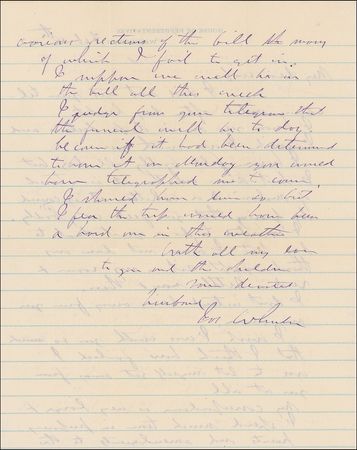 various sections of the bill the many
of which I fail to get in.
I suppose we will be in
the bill all this week
I judge from your telegram that
the funeral will be to day
because if it had been determined
to have it on Monday you would
have telegraphed me to come.
I should have done so but
I fear the trip would have been
a hard one in this weather
With all my love
to you and the children
Your devoted
husband
Jos Wheeler